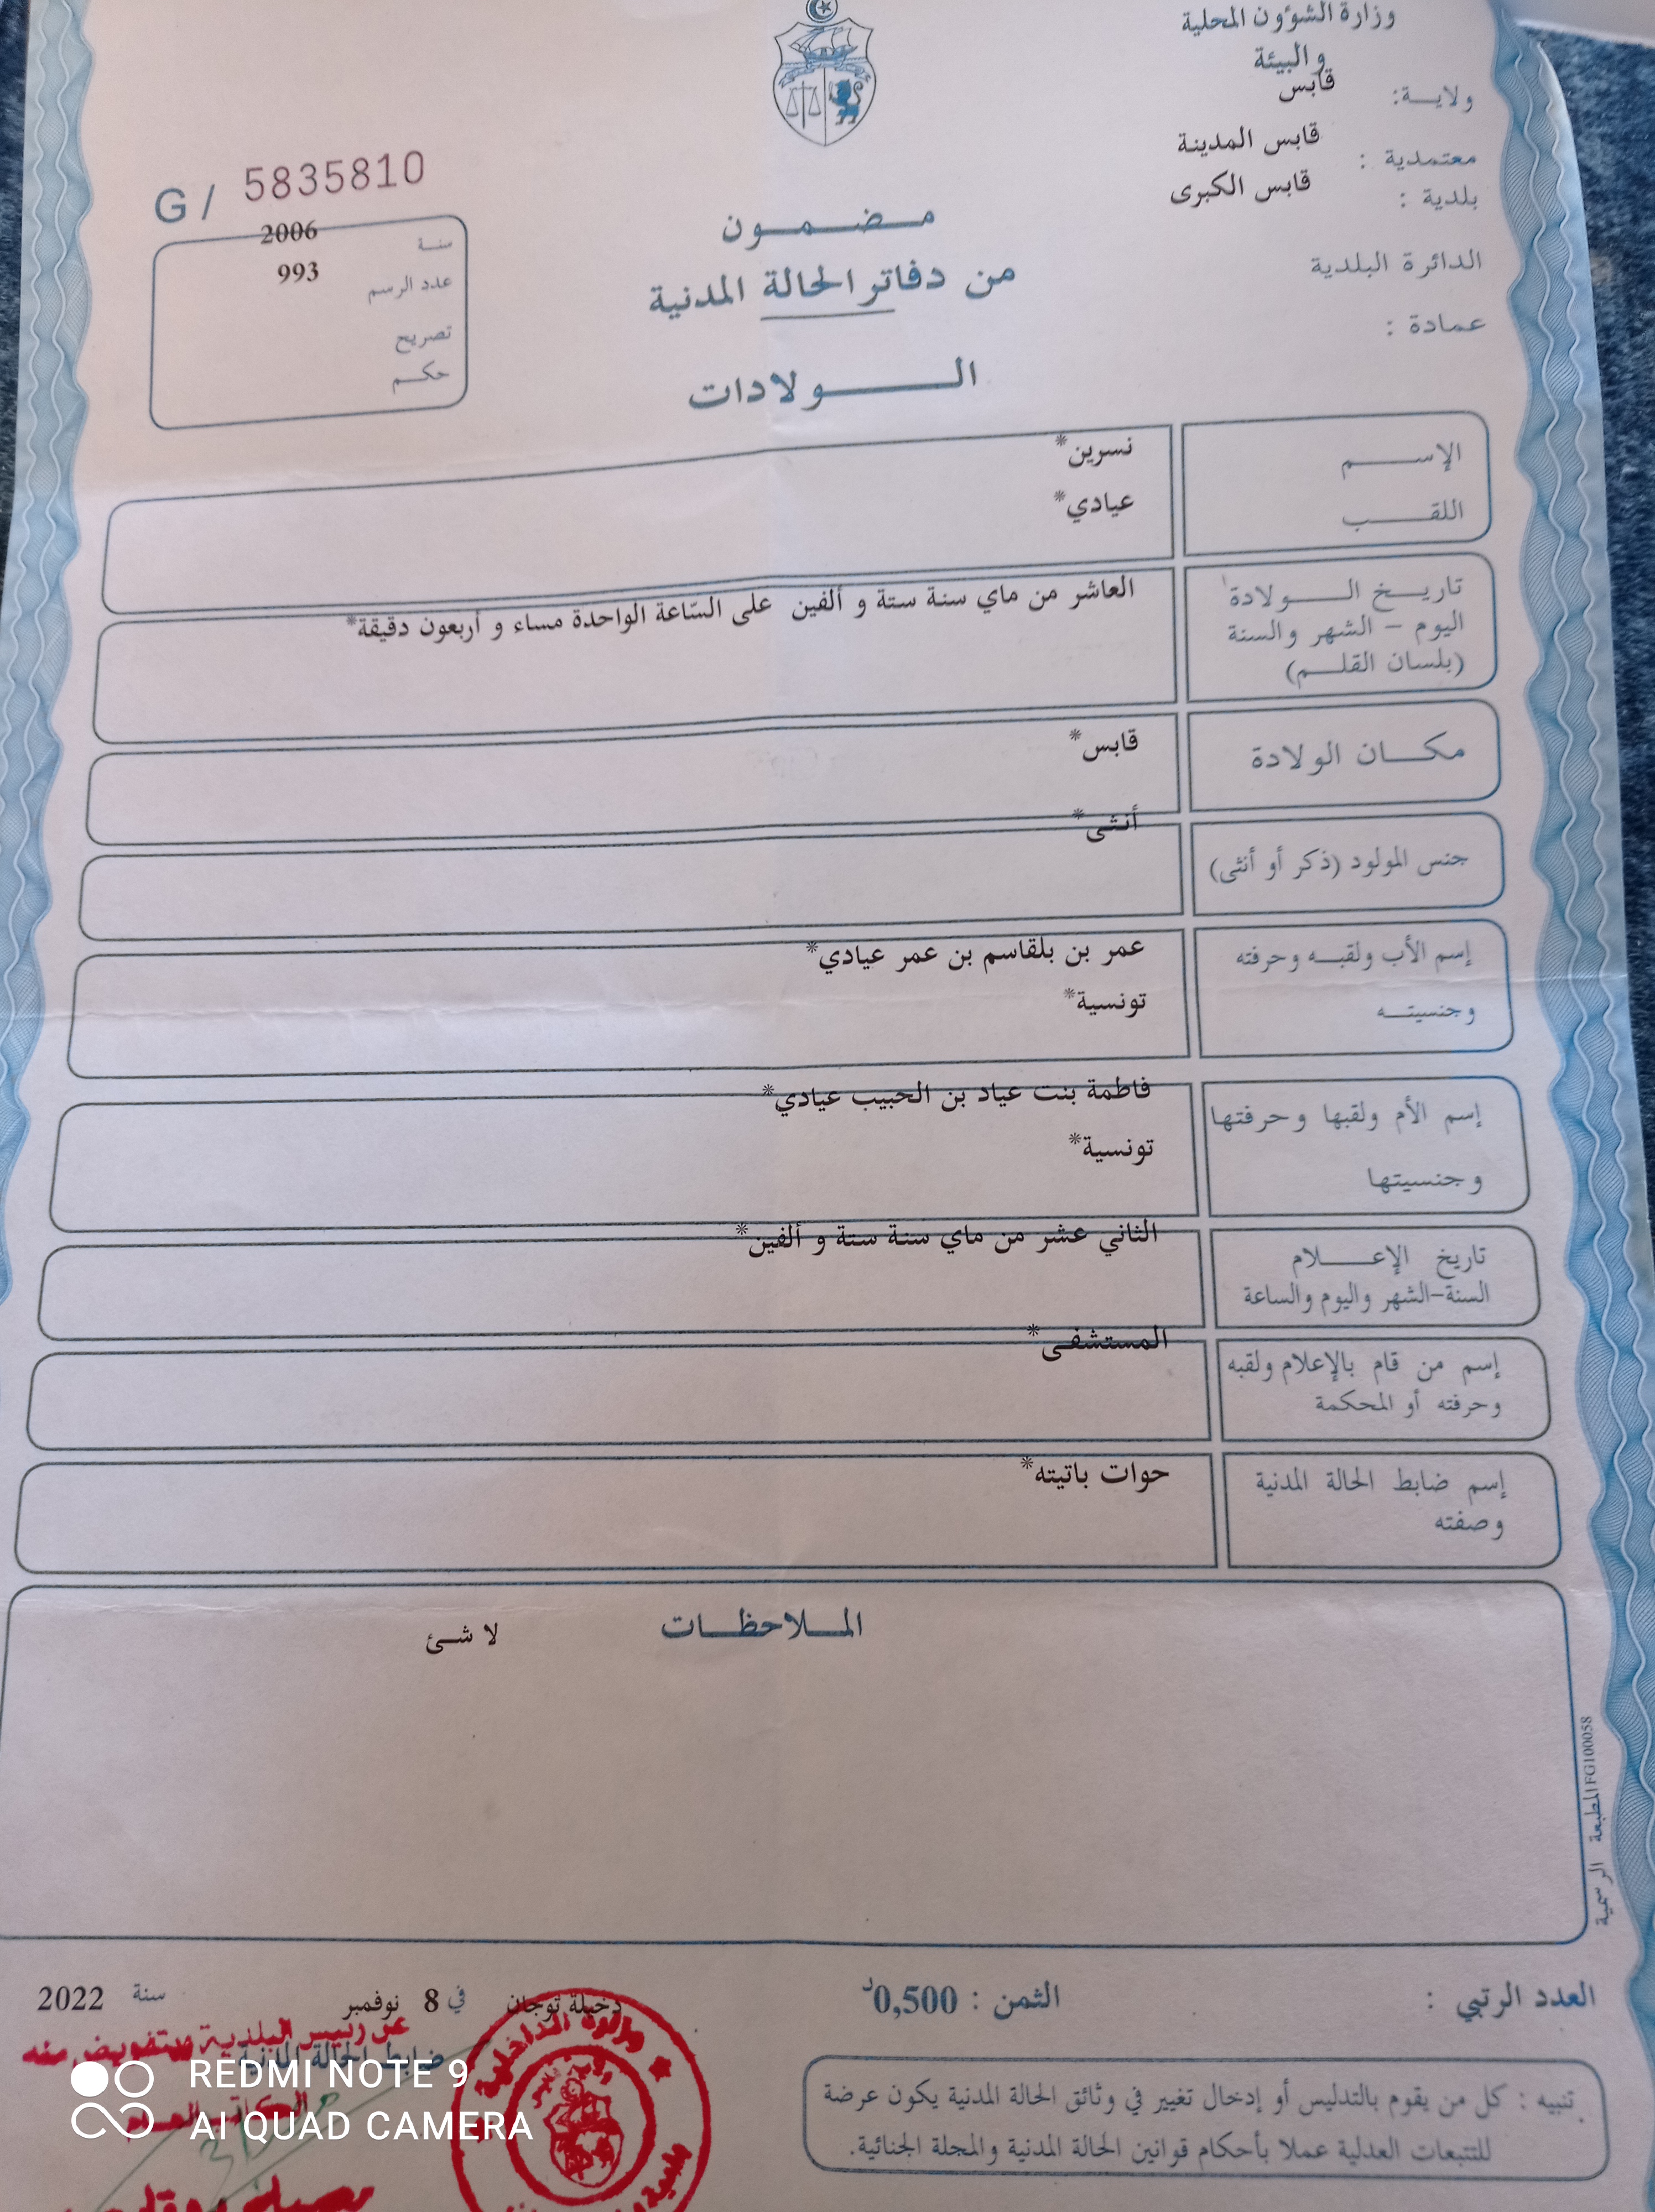 وزارة الشؤون المحلية
والبيئة
ولاية: قابس
معتمدية : قابس المدينة
بلدية : قابس الكبرى
الدائرة البلدية
عمادة :
G / 5835810
سنة 2006
عدد الرسم 993
تصريح
حكم
مضمون
من دفاتر الحالة المدنية
الولادات
الإسم نسرين*
اللقب عيادي*
تاريخ الولادة العاشر من ماي سنة ستة و ألفين على السّاعة الواحدة مساء و أربعون دقيقة*
اليوم - الشهر والسنة
(بلسان القلم)
مكان الولادة قابس*
جنس المولود (ذكر أو أنثى) أنثى*
إسم الأب ولقبه وحرفته عمر بن بلقاسم بن عمر عيادي*
وجنسيته تونسية*
إسم الأم ولقبها وحرفتها فاطمة بنت عياد بن الحبيب عيادي*
وجنسيتها تونسية*
تاريخ الإعلام الثاني عشر من ماي سنة ستة و ألفين*
السنة-الشهر واليوم والساعة
إسم من قام بالإعلام ولقبه المستشفى*
وحرفته أو المحكمة
إسم ضابط الحالة المدنية حوات باتيته*
وصفته
الملاحظات لا شئ
المطبعة الرسمية FG100058
العدد الرتبي :
الثمن : 0,500د
دخيلة توجان في 8 نوفمبر سنة 2022
عن رئيس البلدية وبتفويض منه
ضابط الحالة المدنية
الكاتب العام
وزارة الداخلية
تنبيه : كل من يقوم بالتدليس أو إدخال تغيير في وثائق الحالة المدنية يكون عرضة
للتتبعات العدلية عملا بأحكام قوانين الحالة المدنية والمجلة الجنائية.
REDMI NOTE 9
AI QUAD CAMERA